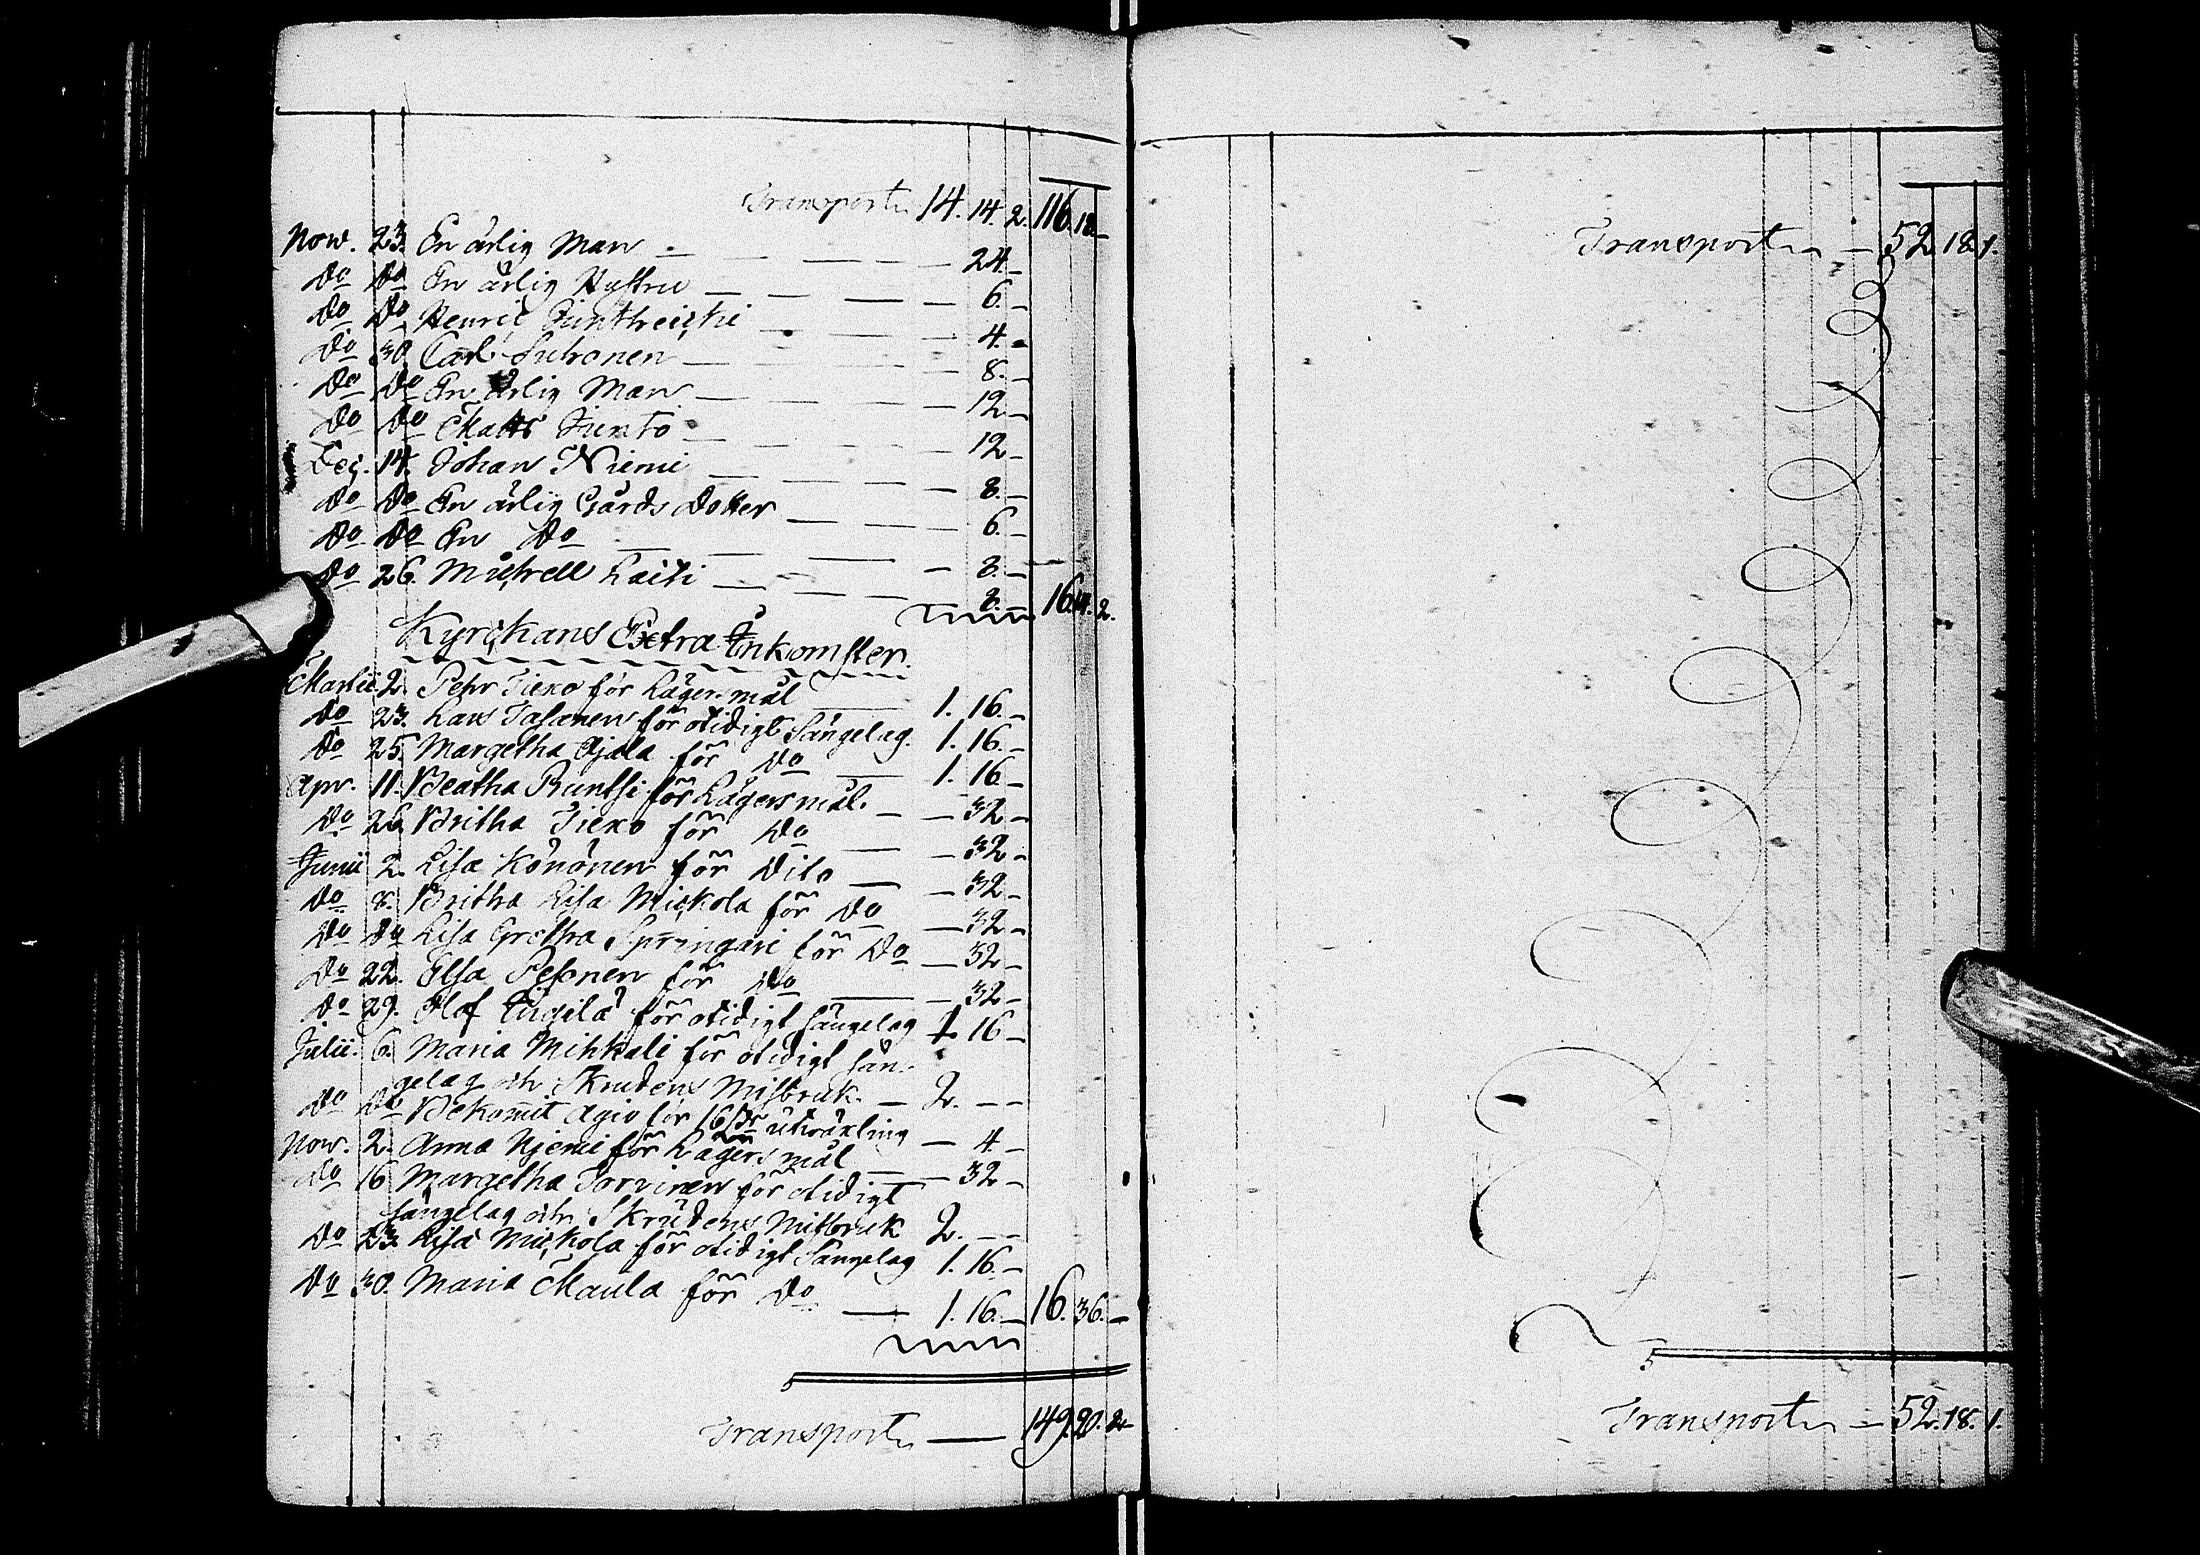 Transport 14. 14. 2. 116. 18. –
Nov. 23. En ärlig Man — 24. –
Do Do En ärlig Hustru — 6. –
Do Do Henric — 4. –
Do 30. Carl Suhonen — 8. –
Do Do En Ärlig Man — 12. –
Do Do Matts — 12. –
Dec. 14. Johan Niemi — 8. –
Do Do En ärlig Gårds Dotter — 6. –
Do Do En Do — 8. –
Do 26. Michell Laiti — 8. – 16. 14. 2.
Kyrckans Extra Inkomster.
Martii 2. Pehr Piexo för Lägersmål — 1. 16. –
Do 23. Lars för otidigt Sängelag. 1. 16. –
Do 25. Margetha Ajala för Do — 1. 16. –
Apr. 11. Beatha för Lägersmål. — 32. –
Do 26. Britha Piexo för Do — 32. –
Junii 2. Lisa Könönen för Dito — 32. –
Do 8. Britha Lisa Mickola för Do — 32. –
Do Do Lisa Gretha Springari för Do — 32. –
Do 22. Elsa Pesonen för Do — 32. –
Do 29. Olof för otidigt sängelag 1. 16. –
Julii. 6. Maria Mihkali för otidigt sän-
gelag och Skrudens Misbruk. — 2. – –
Do Do Bekommit Agio för 16 utväxling — 4. –
Nov. 2. Anna Hjemi för Lägersmål — 32. –
Do 16. Margetha Torvinen för otidigt
sängelag och Skrudens Misbruk 2. – –
Do 23. Lisa Mickola för otidigt Sängelag 1. 16. –
Do 30. Maria Maula för Do — 1. 16. – 16. 36. –
Transport — 149. 20. 2.
Transport — 52. 18. 1.
Transport — 52. 18. 1.